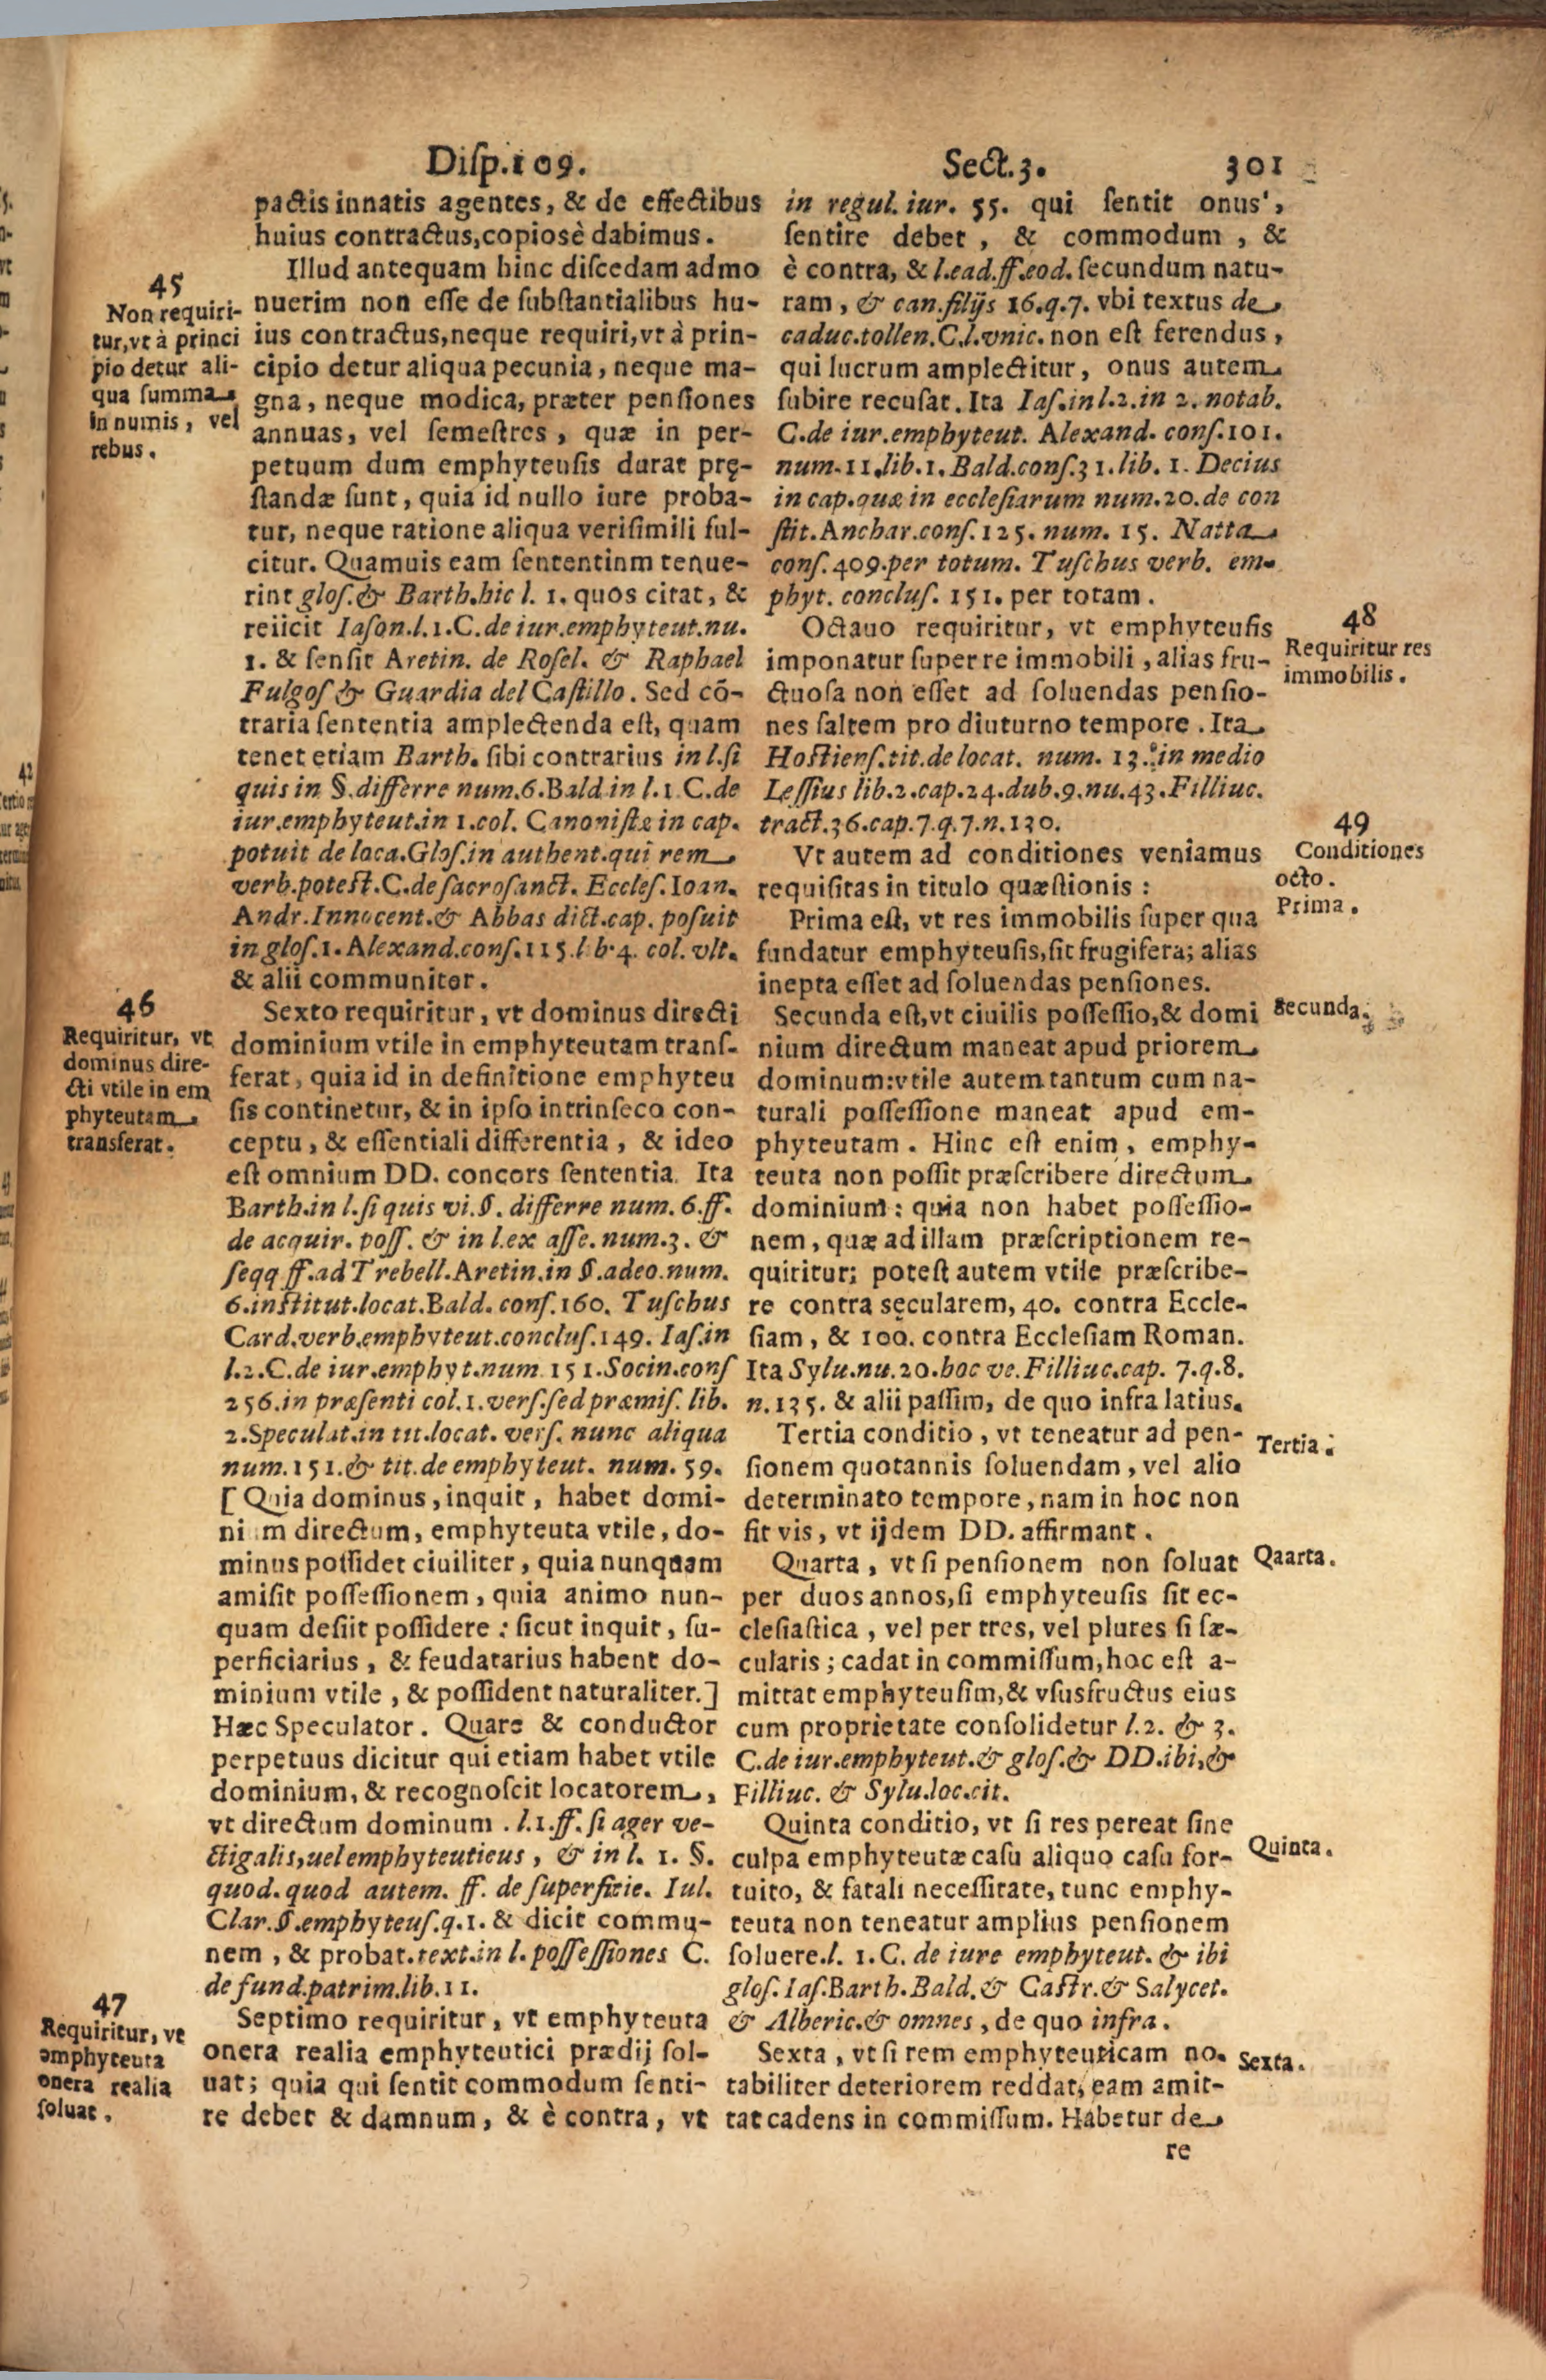 Disp.109. Sect.3. 301
pactis innatis agentes, & de effectibus
huius contractus,copiosè dabimus.
45
Non requiri-
tur,vt à princi
pio detur ali-
qua summa
in numis, vel
rebus.
Illud antequam hinc discedam admo
nuerim non esse de substantialibus hu-
ius contractus,neque requiri,vt à prin-
cipio detur aliqua pecunia, neque ma-
gna, neque modica, præter pensiones
annuas, vel semestres, quæ in per-
petuum dum emphyteusis durat prę-
standæ sunt, quia id nullo iure proba-
tur, neque ratione aliqua verisimili ful-
citur. Quamuis eam sententinm tenue-
rint glos.& Barth.hic l. 1. quos citat, &
reiicit Iason.l.1.C.de iur.emphyteut.nu.
1. & sensit Aretin. de Rosel. & Raphael
Fulgos & Guardia del Castillo. Sed cō-
traria sententia amplectenda est, quam
tenet etiam Barth. sibi contrarius in l.si
quis in §.differre num.6.Bald in l.1.C.de
iur.emphyteut.in 1.col. Canonistæ in cap.
potuit de loca.Glos.in authent.qui rem
verb.potest.C.de sacrosanct. Eccles.Ioan.
Andr.Innocent.& Abbas dict.cap. posuit
in glos.1.Alexand.cons.115.l b.4. col.vlt.
& alii communiter.
46
Requiritur, vt
dominus dire-
cti vtile in em
phyteutam
transferat.
Sexto requiritur, vt dominus directi
dominium vtile in emphyteutam trans-
ferat, quia id in definitione emphyteu
sis continetur, & in ipso intrinseco con-
ceptu, & essentiali differentia, & ideo
est omnium DD. concors sententia. Ita
Barth.in l.si quis vi.§. differre num.6.ff.
de acquir. poss. & in l.ex asse.num.3. &
seqq ff.ad Trebell.Aretin.in §.adeo.num.
6.institut.locat.Bald. cons.160. Tuschus
Card.verb.emphyteut.conclus.149. Ias.in
l.2.C.de iur.emphyt.num 151.Socin.cons
256.in præsenti col.1.vers.sed præmis. lib.
2.Speculat.in tit.locat. vers. nunc aliqua
num.151.& tit.de emphyteut. num. 59.
[Quia dominus, inquit, habet domi-
nium directum, emphyteuta vtile, do-
minus possidet ciuiliter, quia nunquam
amisit possessionem, quia animo nun-
quam desiit possidere : sicut inquit, su-
perficiarius, & feudatarius habent do-
minium vtile, & possident naturaliter.]
Hæc Speculator. Quare & conductor
perpetuus dicitur qui etiam habet vtile
dominium, & recognoscit locatorem,
vt directum dominum . l.1.ff. si ager ve-
ctigalis,uel emphyteuticus, & in l. 1. §.
quod.quod autem. ff. de superficie. Iul.
Clar.§.emphyteus.q.1. & dicit commu-
nem , & probat.text.in l.possessiones C.
de fund.patrim.lib.11.
47
Requiritur, vt
emphyteuta
onera realia
soluat.
Septimo requiritur, vt emphyteuta
onera realia emphyteutici prædij sol-
uat; quia qui sentit commodum senti-
re debet & damnum, & è contra, vt
in regul. iur. 55. qui sentit onus,
sentire debet , & commodum , &
è contra, & l.ead.ff.eod. secundum natu-
ram, & can.filijs 16.q.7. vbi textus de
caduc.tollen.C.l.vnic. non est ferendus,
qui lucrum amplectitur, onus autem
subire recusat. Ita Ias.in l.2.in 2. notab.
C.de iur.emphyteut. Alexand. cons.101.
num.11.lib.1.Bald.cons.31.lib. 1. Decius
in cap.quæ in ecclesiarum num.20.de con
stit.Anchar.cons.125. num. 15. Natta
cons.409.per totum. Tuschus verb. em-
phyt. conclus. 151. per totam.
48
Requiritur res
immobilis.
Octauo requiritur, vt emphyteusis
imponatur super re immobili, alias fru-
ctuosa non esset ad soluendas pensio-
nes saltem pro diuturno tempore . Ita
Hostiens.tit.de locat. num. 13. in medio
Lessius lib.2.cap.24.dub.9.nu.43.Filliuc.
tract.36.cap.7.q.7.n.130.
49
Conditiones
octo.
Vt autem ad conditiones veniamus
requisitas in titulo quæstionis :
Prima.
Prima est, vt res immobilis super qua
fundatur emphyteusis,sit frugifera; alias
inepta esset ad soluendas pensiones.
Secunda.
Secunda est,vt ciuilis possessio,& domi
nium directum maneat apud priorem
dominum:vtile autem tantum cum na-
turali possessione maneat apud em-
phyteutam . Hinc est enim, emphy-
teuta non possit præscribere directum
dominium: quia non habet possessio-
nem, quæ ad illam præscriptionem re-
quiritur; potest autem vtile præscribe-
re contra sęcularem, 40. contra Eccle-
siam, & 100. contra Ecclesiam Roman.
Ita Sylu.nu.20.hoc ve.Filliuc.cap. 7.q.8.
n.135. & alii passim, de quo infra latius.
Tertia.
Tertia conditio , vt teneatur ad pen-
sionem quotannis soluendam, vel alio
determinato tempore, nam in hoc non
fit vis, vt ijdem DD. affirmant .
Qaarta.
Quarta , vt si pensionem non soluat
per duos annos,si emphyteusis sit ec-
clesiastica , vel per tres, vel plures si sæ-
cularis; cadat in commissum,hoc est a-
mittat emphyteusim,& vsusfructus eius
cum proprietate consolidetur l.2. & 3.
C.de iur.emphyteut.& glos.& DD.ibi,&
Filliuc. & Sylu.loc.cit.
Quinta.
Quinta conditio, vt si res pereat sine
culpa emphyteutæ casu aliquo casu for-
tuito, & fatali necessitate, tunc emphy-
teuta non teneatur amplius pensionem
soluere.l. 1.C. de iure emphyteut. & ibi
glos.Ias.Barth.Bald.& Castr.& Salycet.
& Alberic.& omnes, de quo infra.
Sexta.
Sexta , vt si rem emphyteuticam no.
tabiliter deteriorem reddat, eam amit-
tat cadens in commissum. Habetur de
re